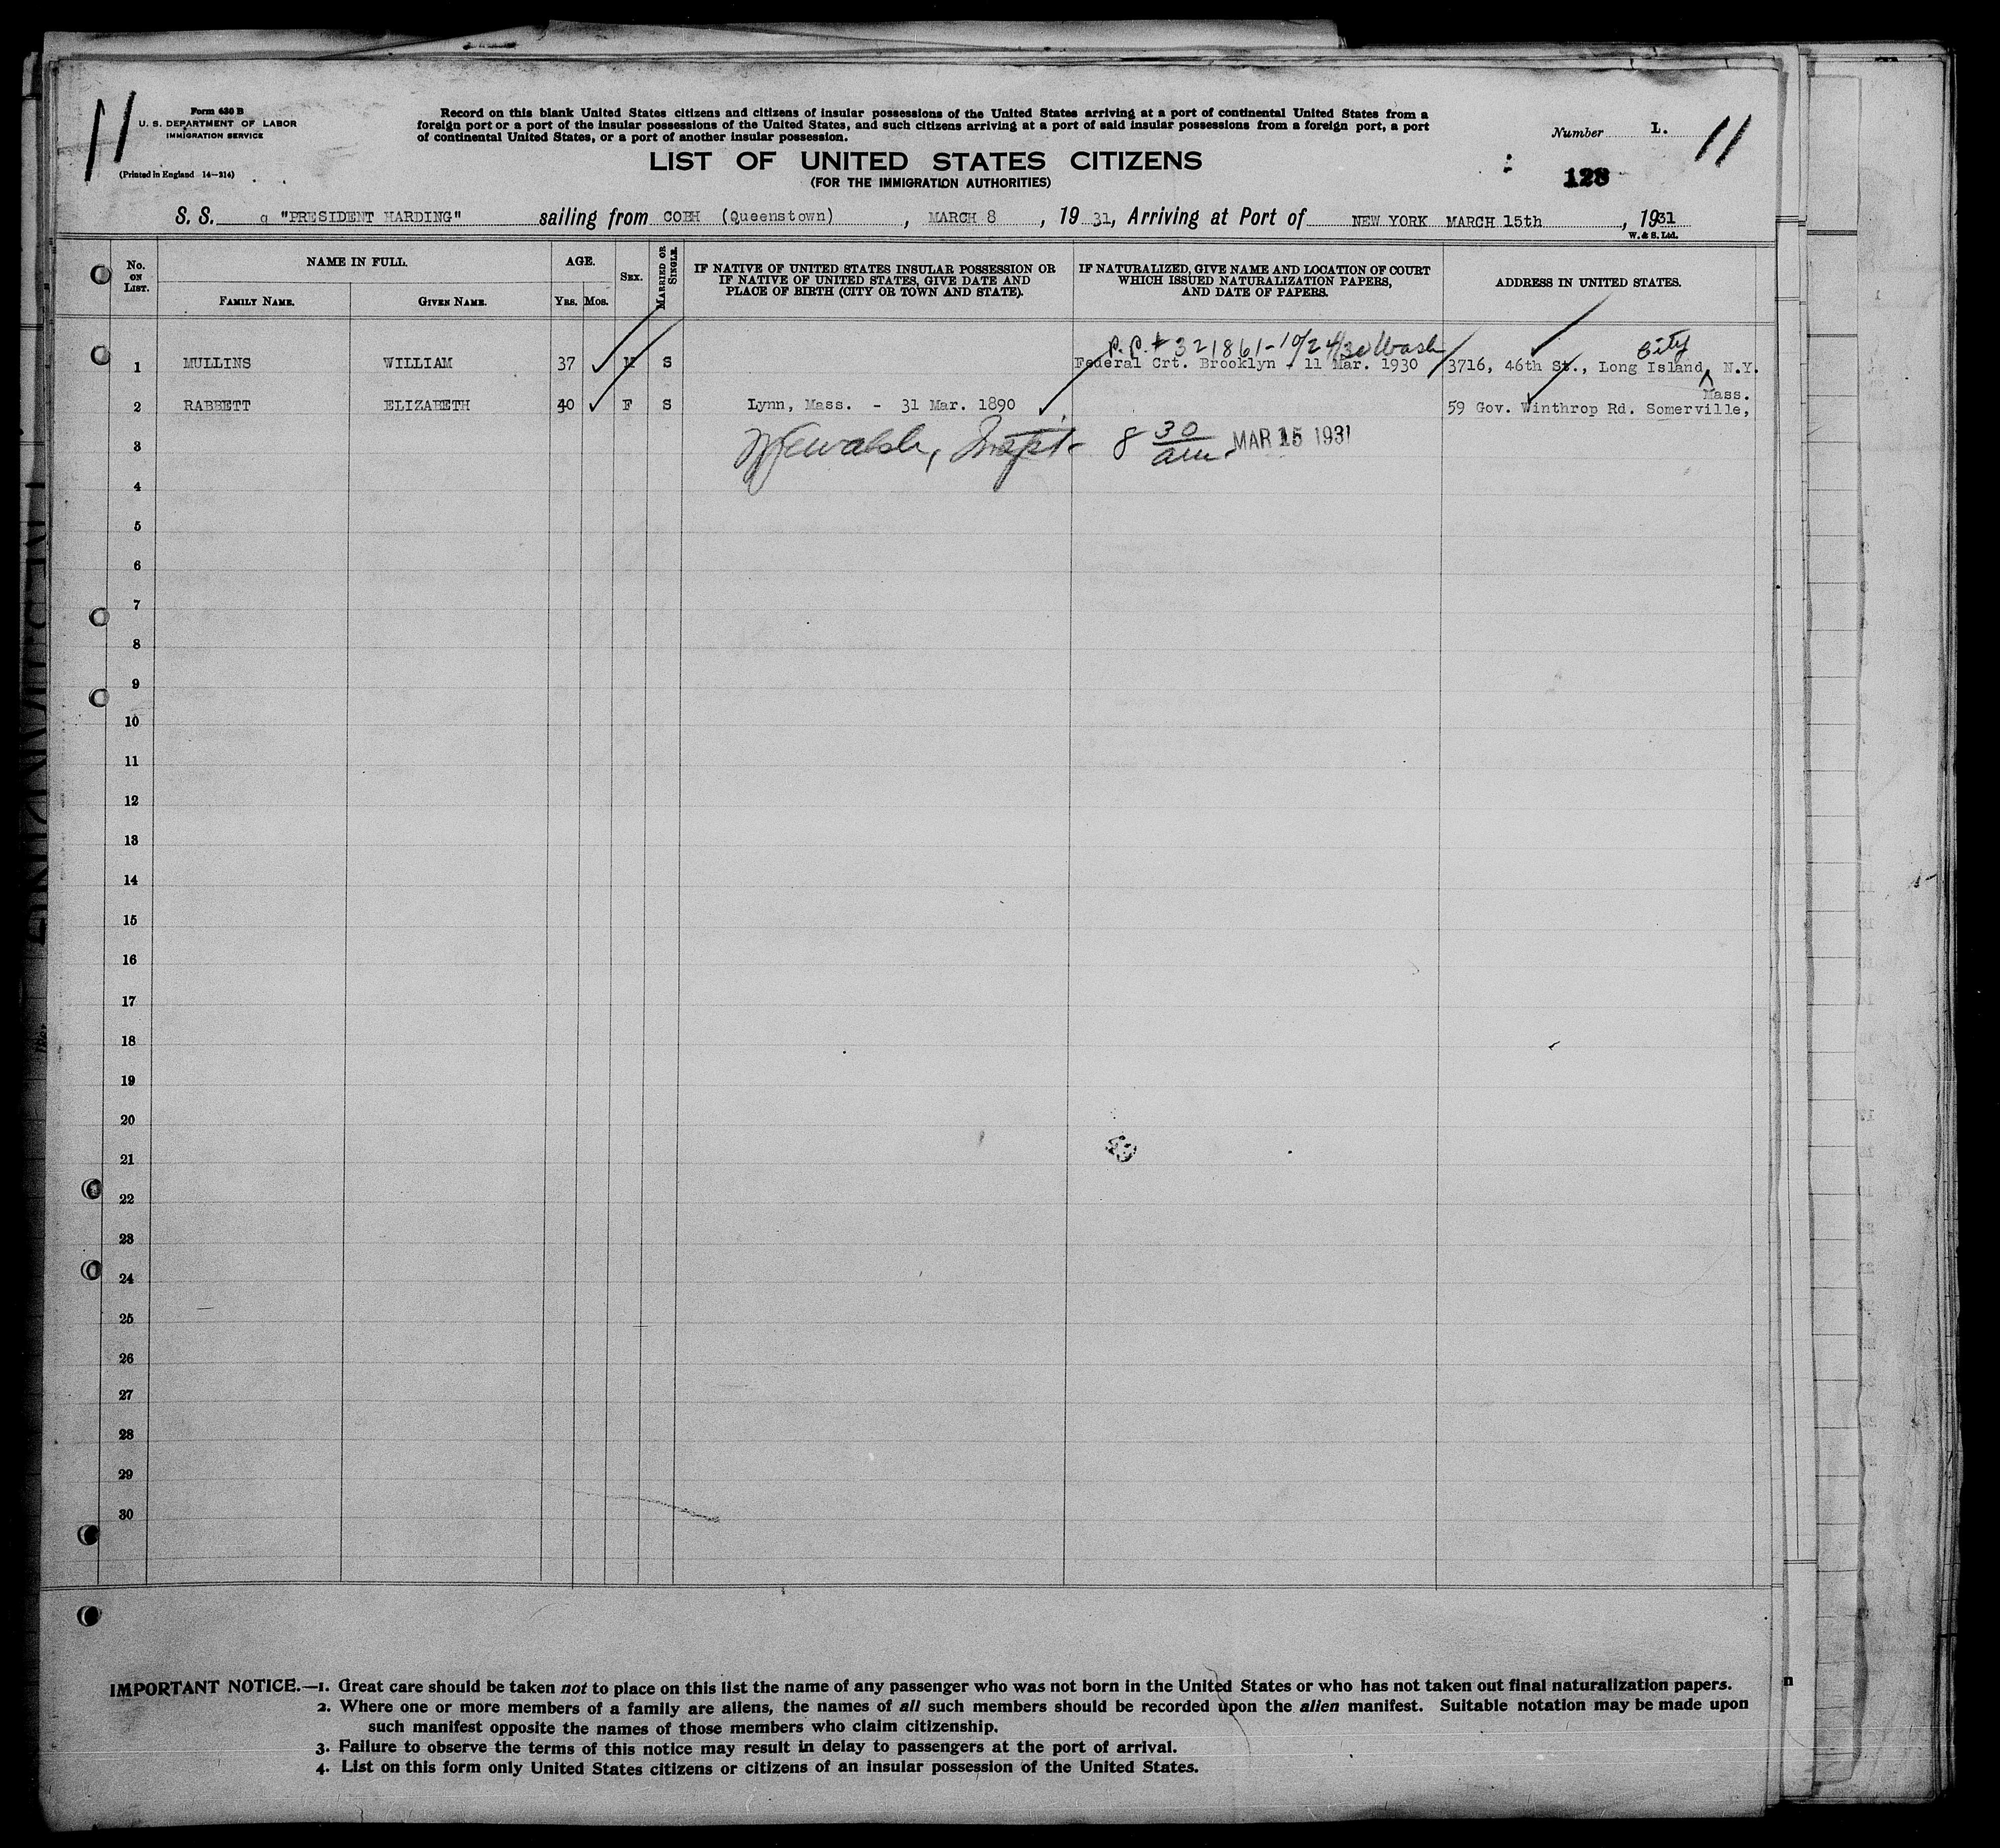 11
Form 630 B
U. S. DEPARTMENT OF LABOR
IMMIGRATION SERVICE
(Printed in England 14—214)
Record on this blank United States citizens and citizens of insular possessions of the United States arriving at a port of continental United States from a
foreign port or a port of the insular possessions of the United States, and such citizens arriving at a port of said insular possessions from a foreign port, a port
of continental United States, or a port of another insular possession.
Number L. 11
LIST OF UNITED STATES CITIZENS
(FOR THE IMMIGRATION AUTHORITIES)
128
S. S. "PRESIDENT HARDING" sailing from COBH (Queenstown), MARCH 8, 1931, Arriving at Port of NEW YORK MARCH 15th, 1931
W. & S. Ltd.
No. ON LIST. NAME IN FULL. AGE. SEX. MARRIED OR SINGLE. IF NATIVE OF UNITED STATES INSULAR POSSESSION OR IF NATIVE OF UNITED STATES, GIVE DATE AND PLACE OF BIRTH (CITY OR TOWN AND STATE). IF NATURALIZED, GIVE NAME AND LOCATION OF COURT WHICH ISSUED NATURALIZATION PAPERS, AND DATE OF PAPERS. ADDRESS IN UNITED STATES.
FAMILY NAME. GIVEN NAME. YRS. MOS.
P.P. # 321861-10/24/30 Wash City
1 MULLINS WILLIAM 37 M S Federal Crt. Brooklyn - 11 Mar. 1930 3716, 46th St., Long Island, N.Y.
Mass.
2 RABBETT ELIZABETH 40 F S Lynn, Mass. - 31 Mar. 1890 59 Gov. Winthrop Rd. Somerville,
3 Walsh, Inspt. 8 30 am. MAR 15 1931
4
5
6
7
8
9
10
11
12
13
14
15
16
17
18
19
20
21
22
23
24
25
26
27
28
29
30
IMPORTANT NOTICE.—1. Great care should be taken not to place on this list the name of any passenger who was not born in the United States or who has not taken out final naturalization papers.
2. Where one or more members of a family are aliens, the names of all such members should be recorded upon the alien manifest. Suitable notation may be made upon
such manifest opposite the names of those members who claim citizenship.
3. Failure to observe the terms of this notice may result in delay to passengers at the port of arrival.
4. List on this form only United States citizens or citizens of an insular possession of the United States.